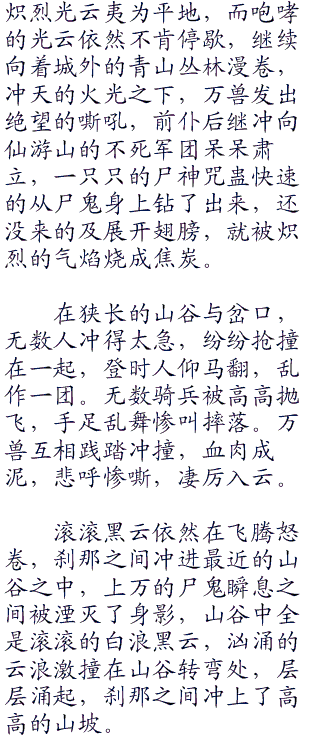 炽烈光云夷为平地，而咆哮
的光云依然不肯停歇，继续
向着城外的青山丛林漫卷，
冲天的火光之下，万兽发出
绝望的嘶吼，前仆后继冲向
仙游山的不死军团呆呆肃
立，一只只的尸神咒蛊快速
的从尸鬼身上钻了出来，还
没来的及展开翅膀，就被炽
烈的气焰烧成焦炭。
在狭长的山谷与岔口，
无数人冲得太急，纷纷抢撞
在一起，登时人仰马翻，乱
作一团。无数骑兵被高高抛
飞，手足乱舞惨叫摔落。万
兽互相践踏冲撞，血肉成
泥，悲呼惨嘶，凄厉入云。
滚滚黑云依然在飞腾怒
卷，刹那之间冲进最近的山
谷之中，上万的尸鬼瞬息之
间被湮灭了身影，山谷中全
是滚滚的白浪黑云，汹涌的
云浪激撞在山谷转弯处，层
层涌起，刹那之间冲上了高
高的山坡。